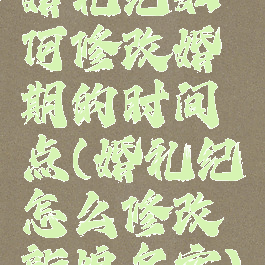 婚礼纪如
何修改婚
期的时间
点(婚礼纪
怎么修改